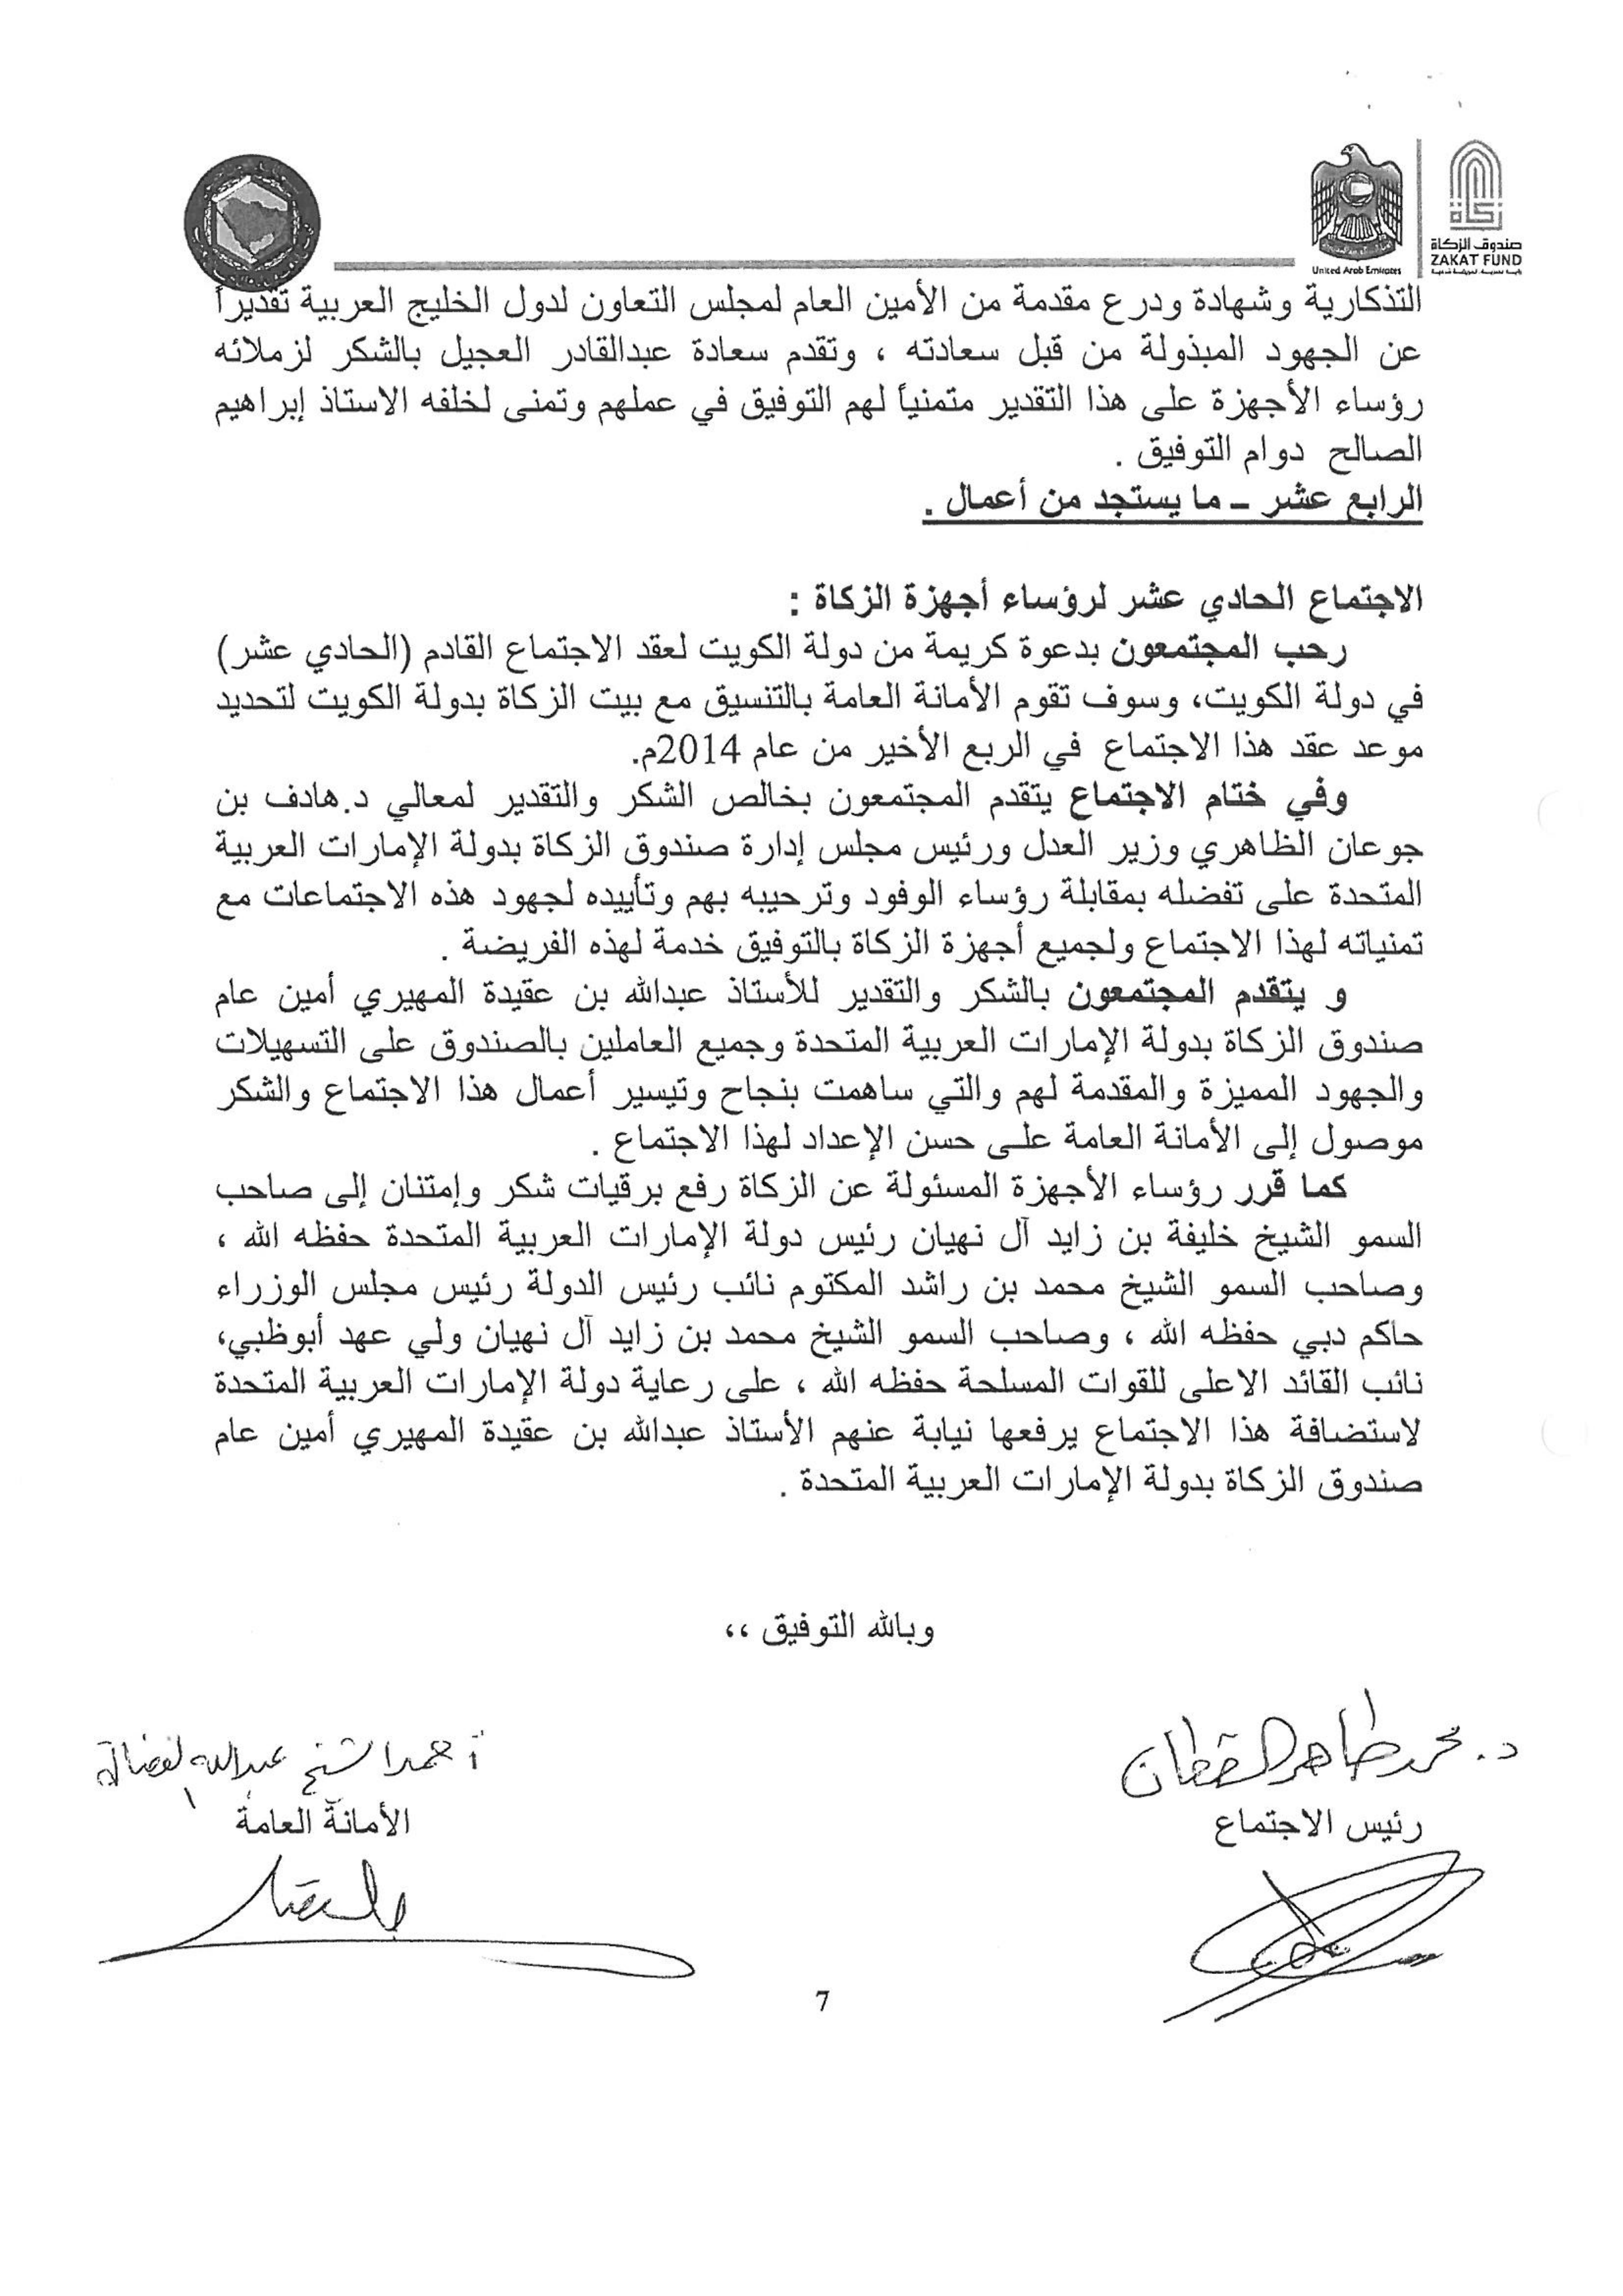 صندوق الزكاة
ZAKAT FUND
United Arab Emirates
التذكارية وشهادة ودرع مقدمة من الأمين العام لمجلس التعاون لدول الخليج العربية تقديراً
عن الجهود المبذولة من قبل سعادته ، وتقدم سعادة عبدالقادر العجيل بالشكر لزملائه
رؤساء الأجهزة على هذا التقدير متمنياً لهم التوفيق في عملهم وتمنى لخلفه الاستاذ إبراهيم
الصالح دوام التوفيق .
الرابع عشر – ما يستجد من أعمال .
الاجتماع الحادي عشر لرؤساء أجهزة الزكاة :
رحب المجتمعون بدعوة كريمة من دولة الكويت لعقد الاجتماع القادم (الحادي عشر)
في دولة الكويت، وسوف تقوم الأمانة العامة بالتنسيق مع بيت الزكاة بدولة الكويت لتحديد
موعد عقد هذا الاجتماع في الربع الأخير من عام 2014م.
وفي ختام الاجتماع يتقدم المجتمعون بخالص الشكر والتقدير لمعالي د.هادف بن
جوعان الظاهري وزير العدل ورئيس مجلس إدارة صندوق الزكاة بدولة الإمارات العربية
المتحدة على تفضله بمقابلة رؤساء الوفود وترحيبه بهم وتأييده لجهود هذه الاجتماعات مع
تمنياته لهذا الاجتماع ولجميع أجهزة الزكاة بالتوفيق خدمة لهذه الفريضة .
و يتقدم المجتمعون بالشكر والتقدير للأستاذ عبدالله بن عقيدة المهيري أمين عام
صندوق الزكاة بدولة الإمارات العربية المتحدة وجميع العاملين بالصندوق على التسهيلات
والجهود المميزة والمقدمة لهم والتي ساهمت بنجاح وتيسير أعمال هذا الاجتماع والشكر
موصول إلى الأمانة العامة على حسن الإعداد لهذا الاجتماع .
كما قرر رؤساء الأجهزة المسئولة عن الزكاة رفع برقيات شكر وإمتنان إلى صاحب
السمو الشيخ خليفة بن زايد آل نهيان رئيس دولة الإمارات العربية المتحدة حفظه الله ،
وصاحب السمو الشيخ محمد بن راشد المكتوم نائب رئيس الدولة رئيس مجلس الوزراء
حاكم دبي حفظه الله ، وصاحب السمو الشيخ محمد بن زايد آل نهيان ولي عهد أبوظبي،
نائب القائد الاعلى للقوات المسلحة حفظه الله ، على رعاية دولة الإمارات العربية المتحدة
لاستضافة هذا الاجتماع يرفعها نيابة عنهم الأستاذ عبدالله بن عقيدة المهيري أمين عام
صندوق الزكاة بدولة الإمارات العربية المتحدة .
وبالله التوفيق ،،
د. محمد طاهر القطان
رئيس الاجتماع
أحمد الشيخ عبدالله الفضالة
الأمانة العامة
7